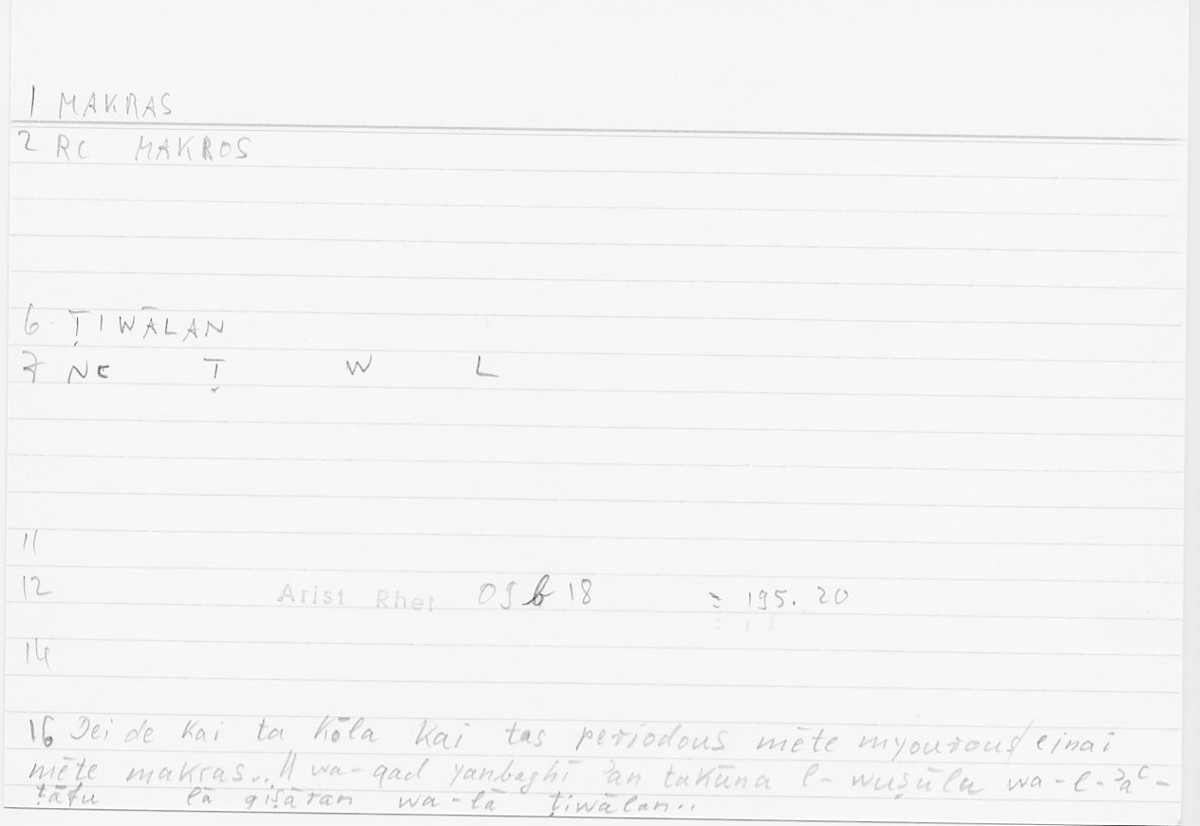 1 MAKRAS
2 RC MAKROS
6 ṬIWĀLAN
7 NC Ṭ W L
11
12 Arist Rhet 09 b 18 = 195. 20
14
16 Dei de kai ta kōla kai tas periodous mēte myourous einai
mēte makras..// wa-qad yanbaghī ʾan takūna l-wuṣūlu wa-l-ʾaʿ-
ṭāfu lā qiṣāran wa-lā ṭiwālan..